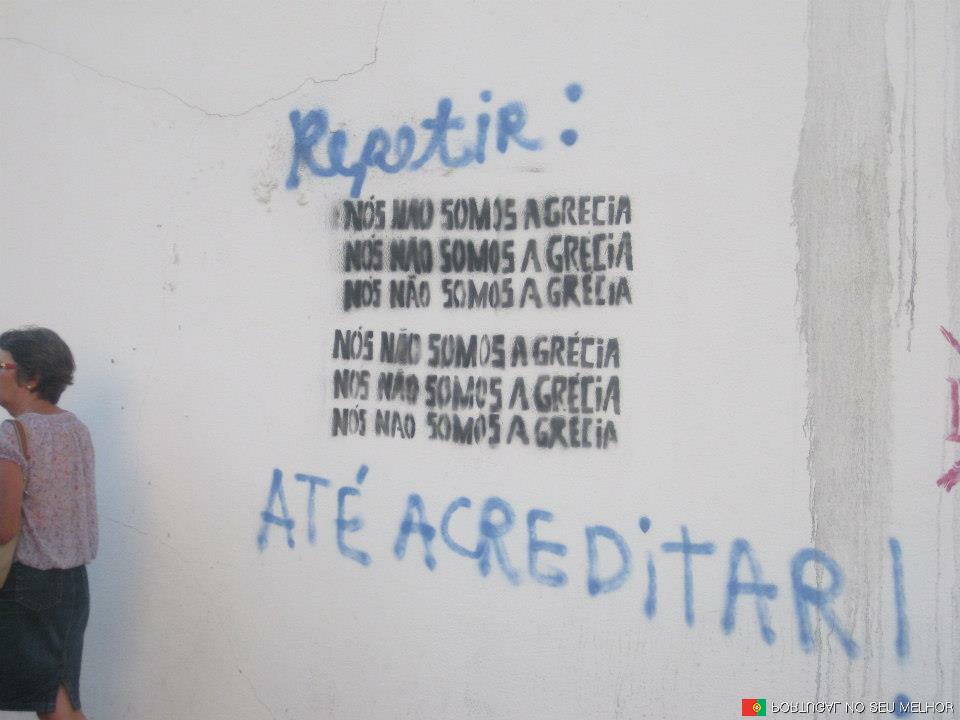 Repetir:
NÓS NAO SOMOS A GRECIA
NÓS NAO SOMOS A GRÉCIA
NÓS NÃO SOMOS A GRÉCIA
NÓS NÃO SOMOS A GRÉCIA
NÓS NÃO SOMOS A GRÉCIA
NÓS NAO SOMOS A GRÉCIA
ATÉ ACREDITAR!
PORTUGAL NO SEU MELHOR